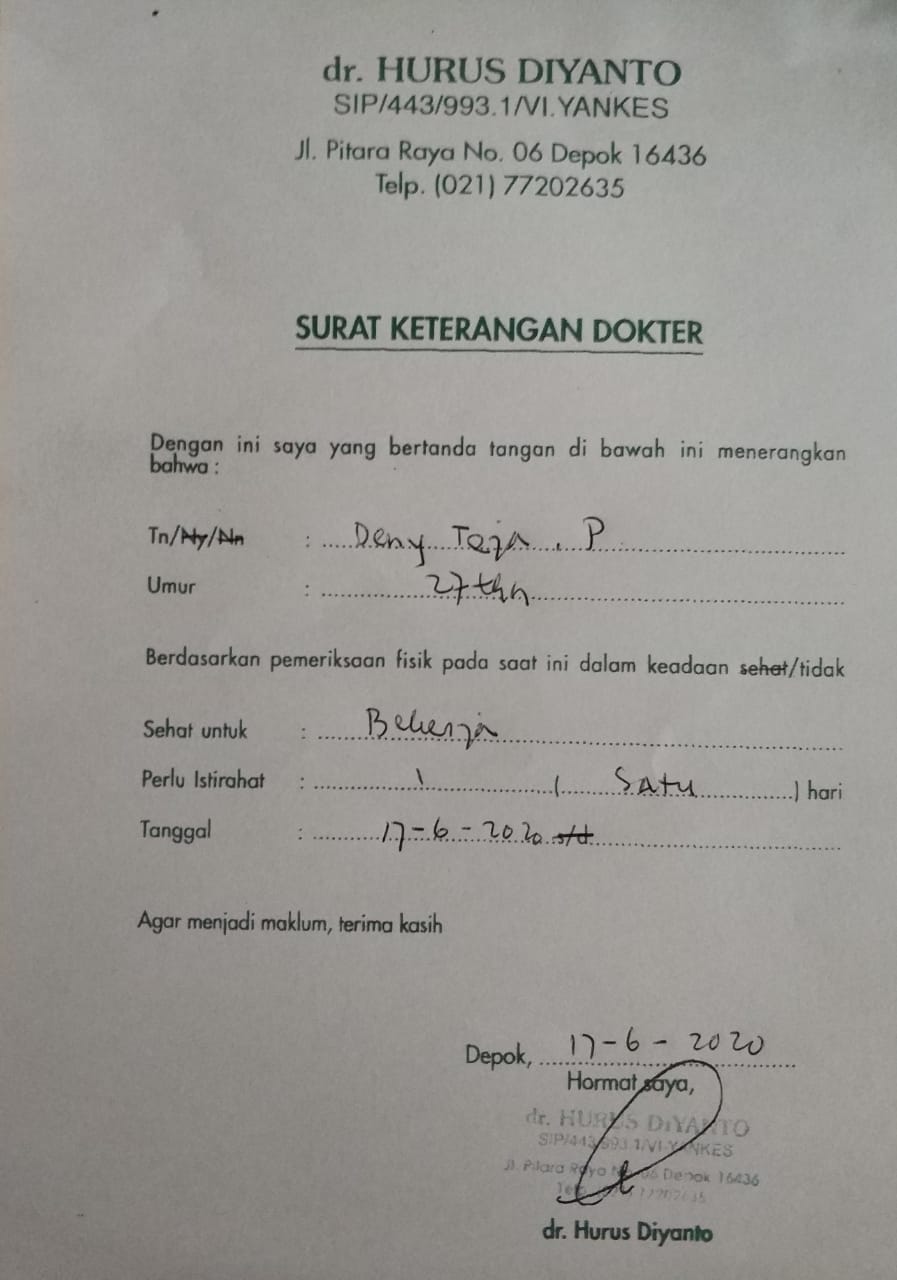 dr. HURUS DIYANTO
SIP/443/993.1/VI.YANKES
Jl. Pitara Raya No. 06 Depok 16436
Telp. (021) 77202635
SURAT KETERANGAN DOKTER
Dengan ini saya yang bertanda tangan di bawah ini menerangkan
bahwa :
Tn/Ny/Nn : Deny Teja . P
Umur : 27 thn
Berdasarkan pemeriksaan fisik pada saat ini dalam keadaan sehat/tidak
Sehat untuk : Bekerja
Perlu Istirahat : 1 ( Satu ) hari
Tanggal : 17-6-2020 s/d
Agar menjadi maklum, terima kasih
Depok, 17-6-2020
Hormat saya,
dr. HURUS DIYANTO
SIP/443/993.1/VI-YANKES
Jl. Pitara Raya No. 06 Depok 16436
dr. Hurus Diyanto